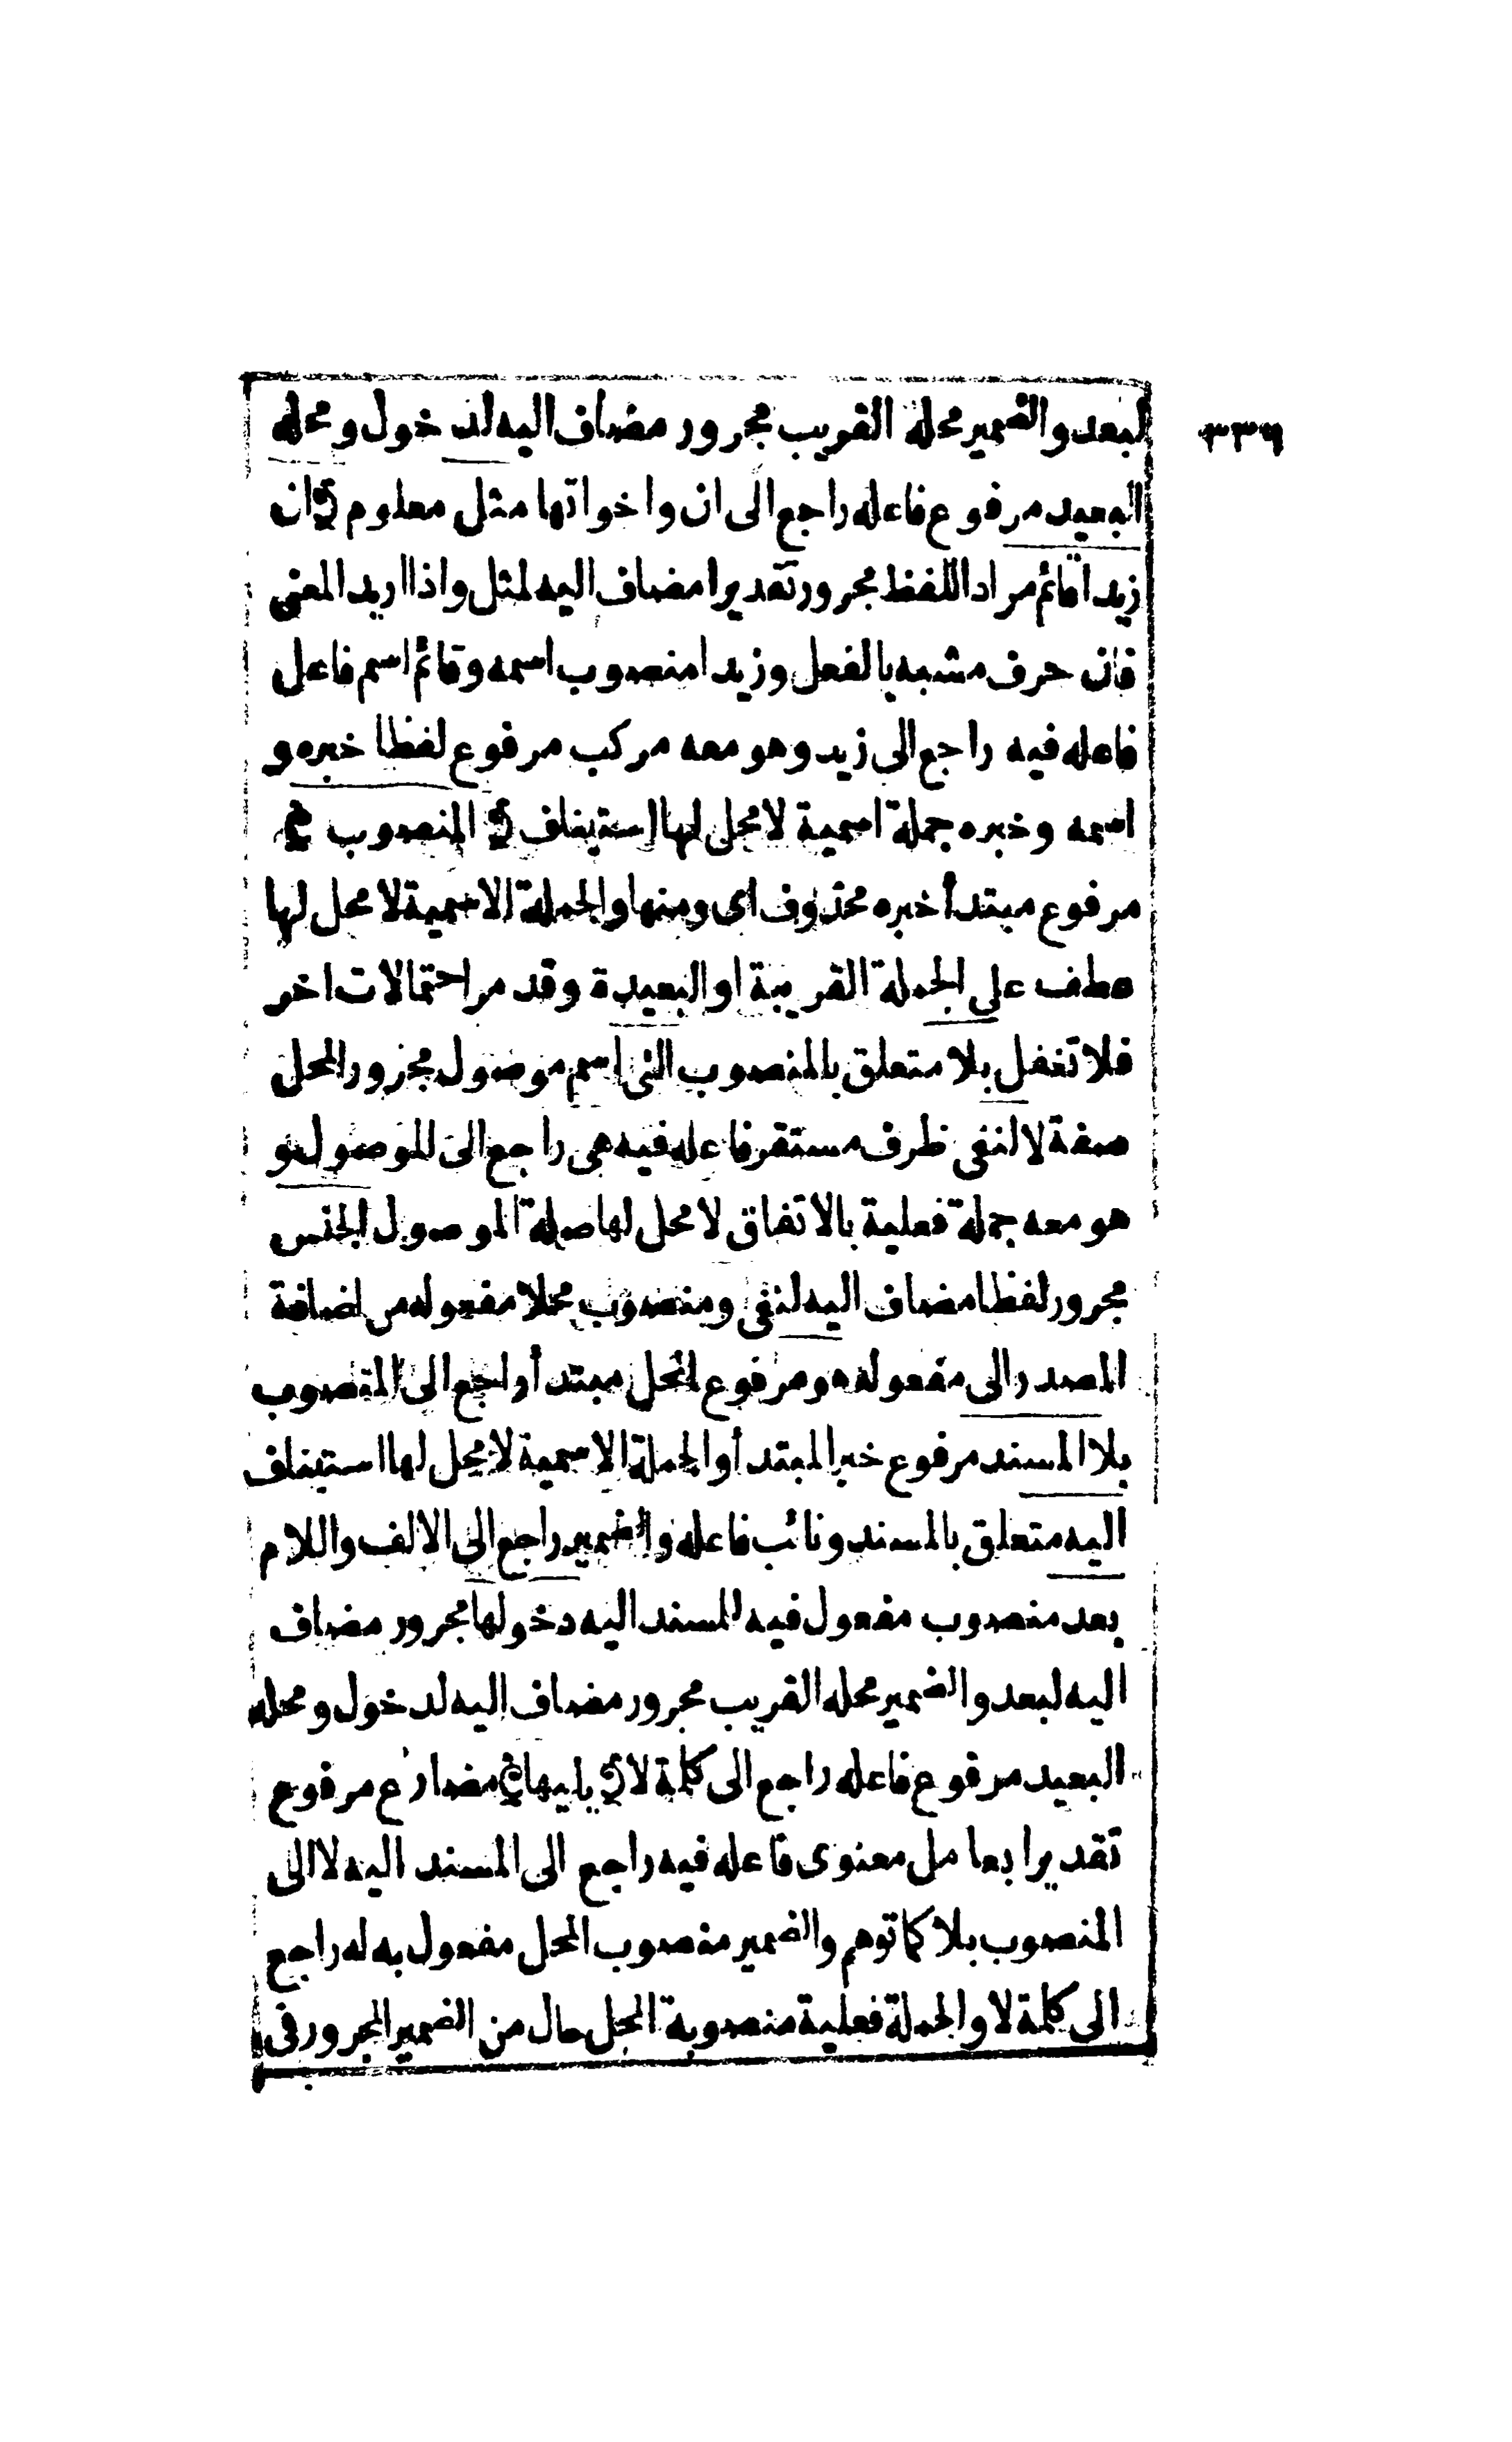 ٣٣٦
لبعد والضمير محله القريب مجرور مضاف اليه لدخول ومحله
البعيد مرفوع فاعله راجع الى ان واخواتها مثل معلوم ان
زيدا قائم مراد اللفظ مجرور تقديرا مضاف اليه لمثل واذا اريد المعنى
فان حرف مشبه بالفعل وزيدا منصوب اسمه وقائم اسم فاعل
فاعله فيه راجع الى زيد وهو معه مركب مرفوع لفظا خبره و
اسمه وخبره جملة اسمية لا محل لها استيناف المنصوب
مرفوع مبتدأ خبره محذوف اى ومنها والجملة الاسمية لا محل لها
عطف على الجملة القريبة او البعيدة وقد مر احتمالات اخر
فلا تغفل بلا متعلق بالمنصوب التى اسم موصول مجرور المحل
صفة لا لنفى ظرف مستقر فاعله فيه هى راجع الى الموصول و
هو معه جملة فعلية بالاتفاق لا محل لها صلة الموصول الجنس
مجرور لفظا مضاف اليه لنفى ومنصوب محلا مفعوله من اضافة
المصدر الى مفعوله هو مرفوع المحل مبتدأ راجع الى المنصوب
بلا المسند مرفوع خبر المبتدأ والجملة الاسمية لا محل لها استيناف
اليه متعلق بالمسند ونائب فاعله والضمير راجع الى الالف واللام
بعد منصوب مفعول فيه للمسند اليه دخولها مجرور مضاف
اليه لبعد والضمير محله القريب مجرور مضاف اليه لدخول ومحله
البعيد مرفوع فاعله راجع الى كلمة لا يليها مضارع مرفوع
تقديرا بعامل معنوى فاعله فيه راجع الى المسند اليه لا الى
المنصوب بلا كما توهم والضمير منصوب المحل مفعول به له راجع
الى كلمة لا والجملة فعلية منصوبة المحل حال من الضمير المجرور فى